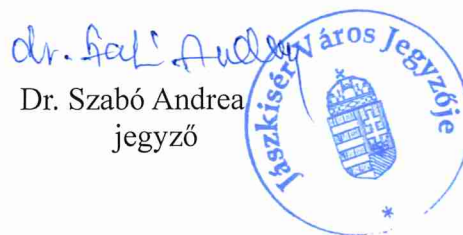 dr. Szabó Andrea
Dr. Szabó Andrea
jegyző
Jászkisér Város Jegyzője
*